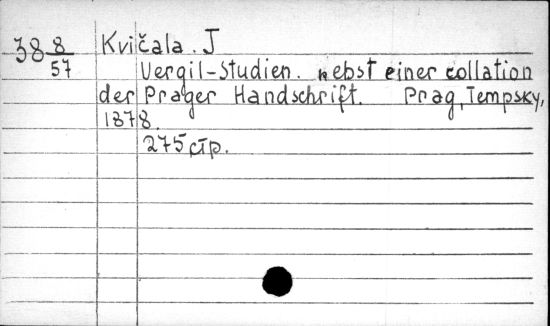 38 8/57 Kvičala. J
Vergil-Studien. nebst einer collation
der Prager Handschrift. Prag, Tempsky,
1878.
275 стр.